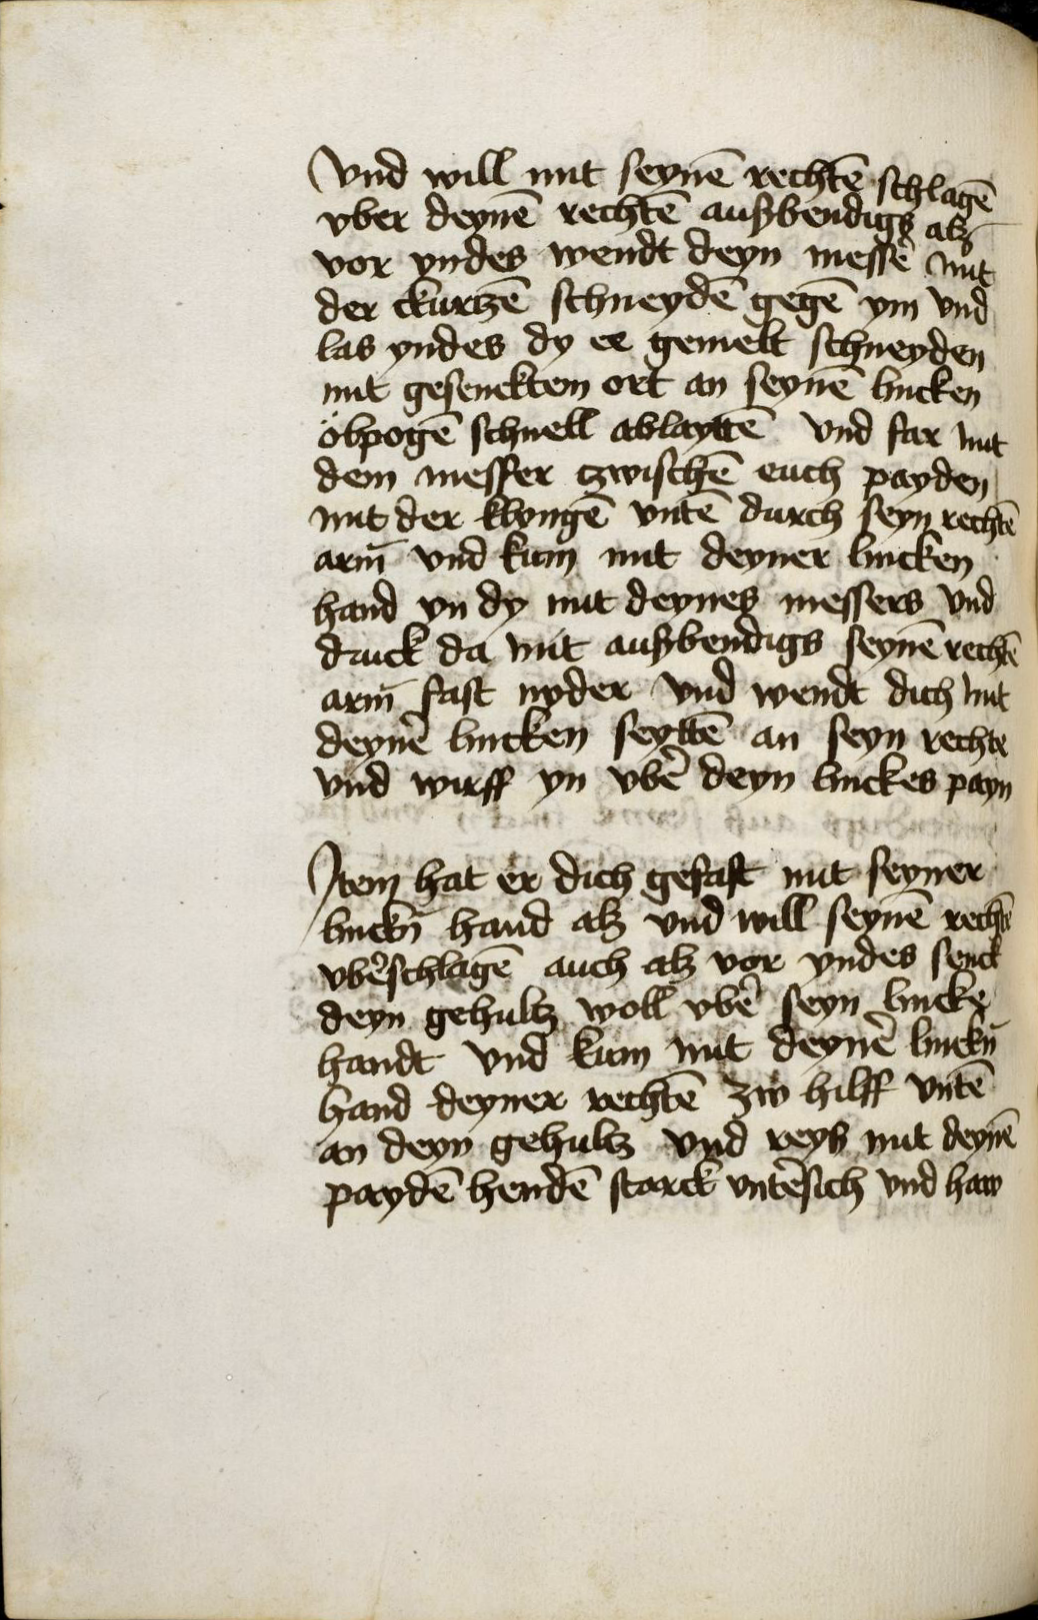 Vnd will mit seynē rechtē schlagē
vber deynē rechtē außbendigs als
vor yndes wendt deyn messe͛ mit
der ckurtzē schneydē gegē ym vnd
las yndes dy ee gemelt schneyden
mit gesencktem ort an seynē lincken
öbpogē schnell ablayttē vnd far mit
dem messer tzwischē euch payden
mit der klyngē vntē durch seyn rechtē
arm̄ vnd kum mit deyner lincken
hand yn dy mit deynes messers vnd
druck da mit außbendigs seynē rechtē
arm̄ fast nyder vnd wendt dich mit
deyne͛ lincken seyttē an seyn rechte
vnd wirff yn vbe͛ deyn linckes payn
Item hat er dich gefast mit seyner
linckn̄ hand als vnd will seynē rechtē
vbe͛schlagē auch als vor yndes senck
deyn gehultz woll vbe͛ seyn lincke
handt vnd kum mit deyne͛ linckn̄
hand deyner rechtē zw hilff vntē
an deyn gehultz vnd reys mit deynē
paydē hendē starck vnte͛sich vnd haw